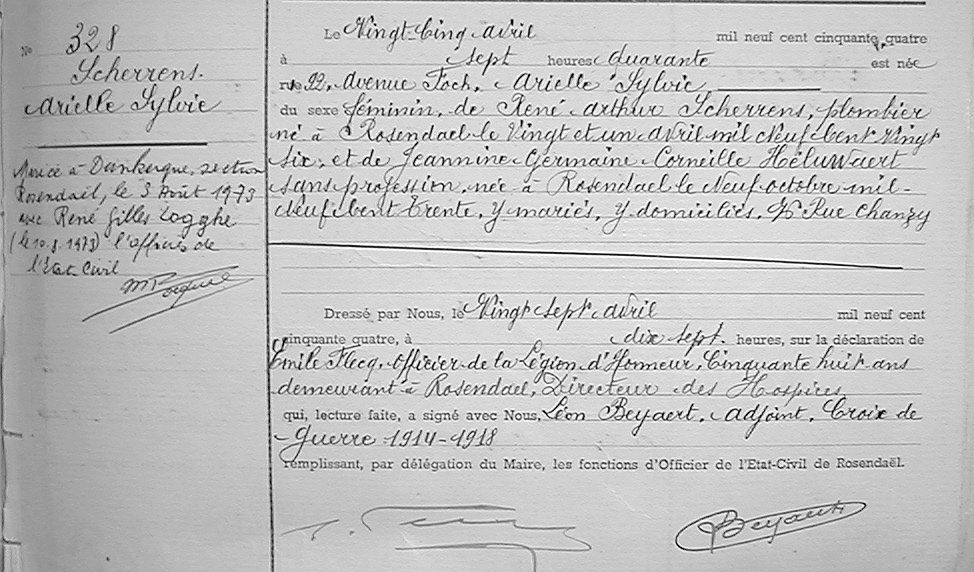 N° 328
Scherrens.
Arielle Sylvie
Marié à Dunkerque, section
Rosendaël, le 3 Août 1973
avec René Gilles Logghe
(le 10.8.1973) l'officier de
l'Etat Civil
Le Vingt-Cinq Avril mil neuf cent cinquante quatre
à sept heures quarante est née
rue 22, Avenue Foch, Arielle Sylvie,
du sexe féminin, de René Arthur Scherrens, plombier
né à Rosendael le Vingt et un avril mil Neuf Cent Vingt
Six, et de Jeannine Germaine Corneille Héluwaert
sans profession, née à Rosendael le Neuf octobre mil-
Neuf Cent Trente, y mariés, y domiciliés, Rue Chanzy
Dressé par Nous, le Vingt sept avril mil neuf cent
cinquante quatre, à dix sept heures, sur la déclaration de
Emile Flecq, officier de la Légion d'Honneur, Cinquante huit ans
demeurant à Rosendael, Directeur des Hospices
qui, lecture faite, a signé avec Nous, Léon Beyaert, Adjoint, Croix de
Guerre 1914-1918
remplissant, par délégation du Maire, les fonctions d'Officier de l'Etat-Civil de Rosendaël.
Beyaert